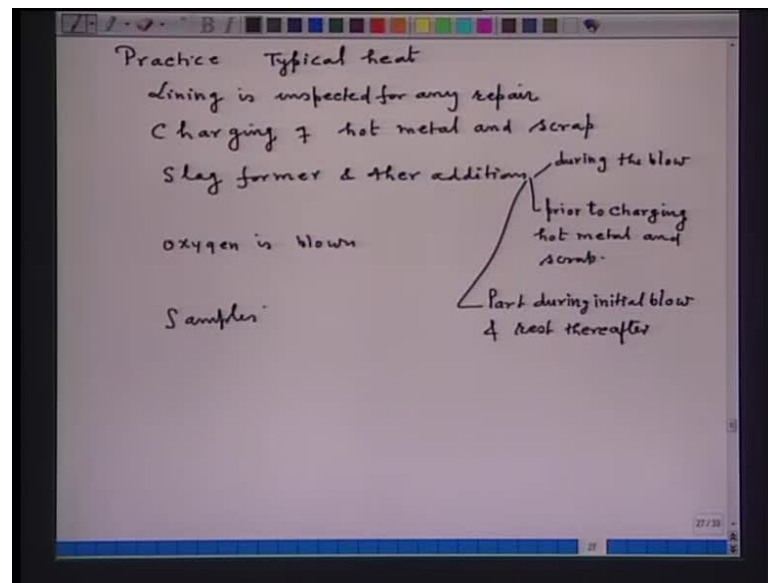 Practice Typical heat
Lining is inspected for any repair
Charging of hot metal and scrap
Slag former & other additions
during the blow
prior to charging
hot metal and
scrab.
Part during initial blow
& rest thereafter
oxygen is blown
Samples
B I
27/33
27